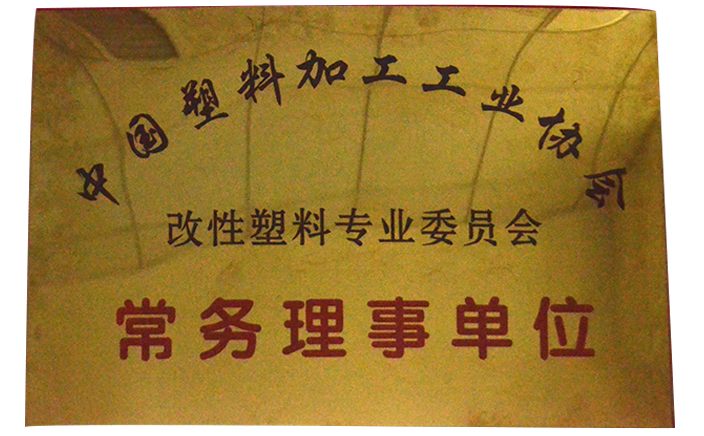 中国塑料加工工业协会
改性塑料专业委员会
常务理事单位